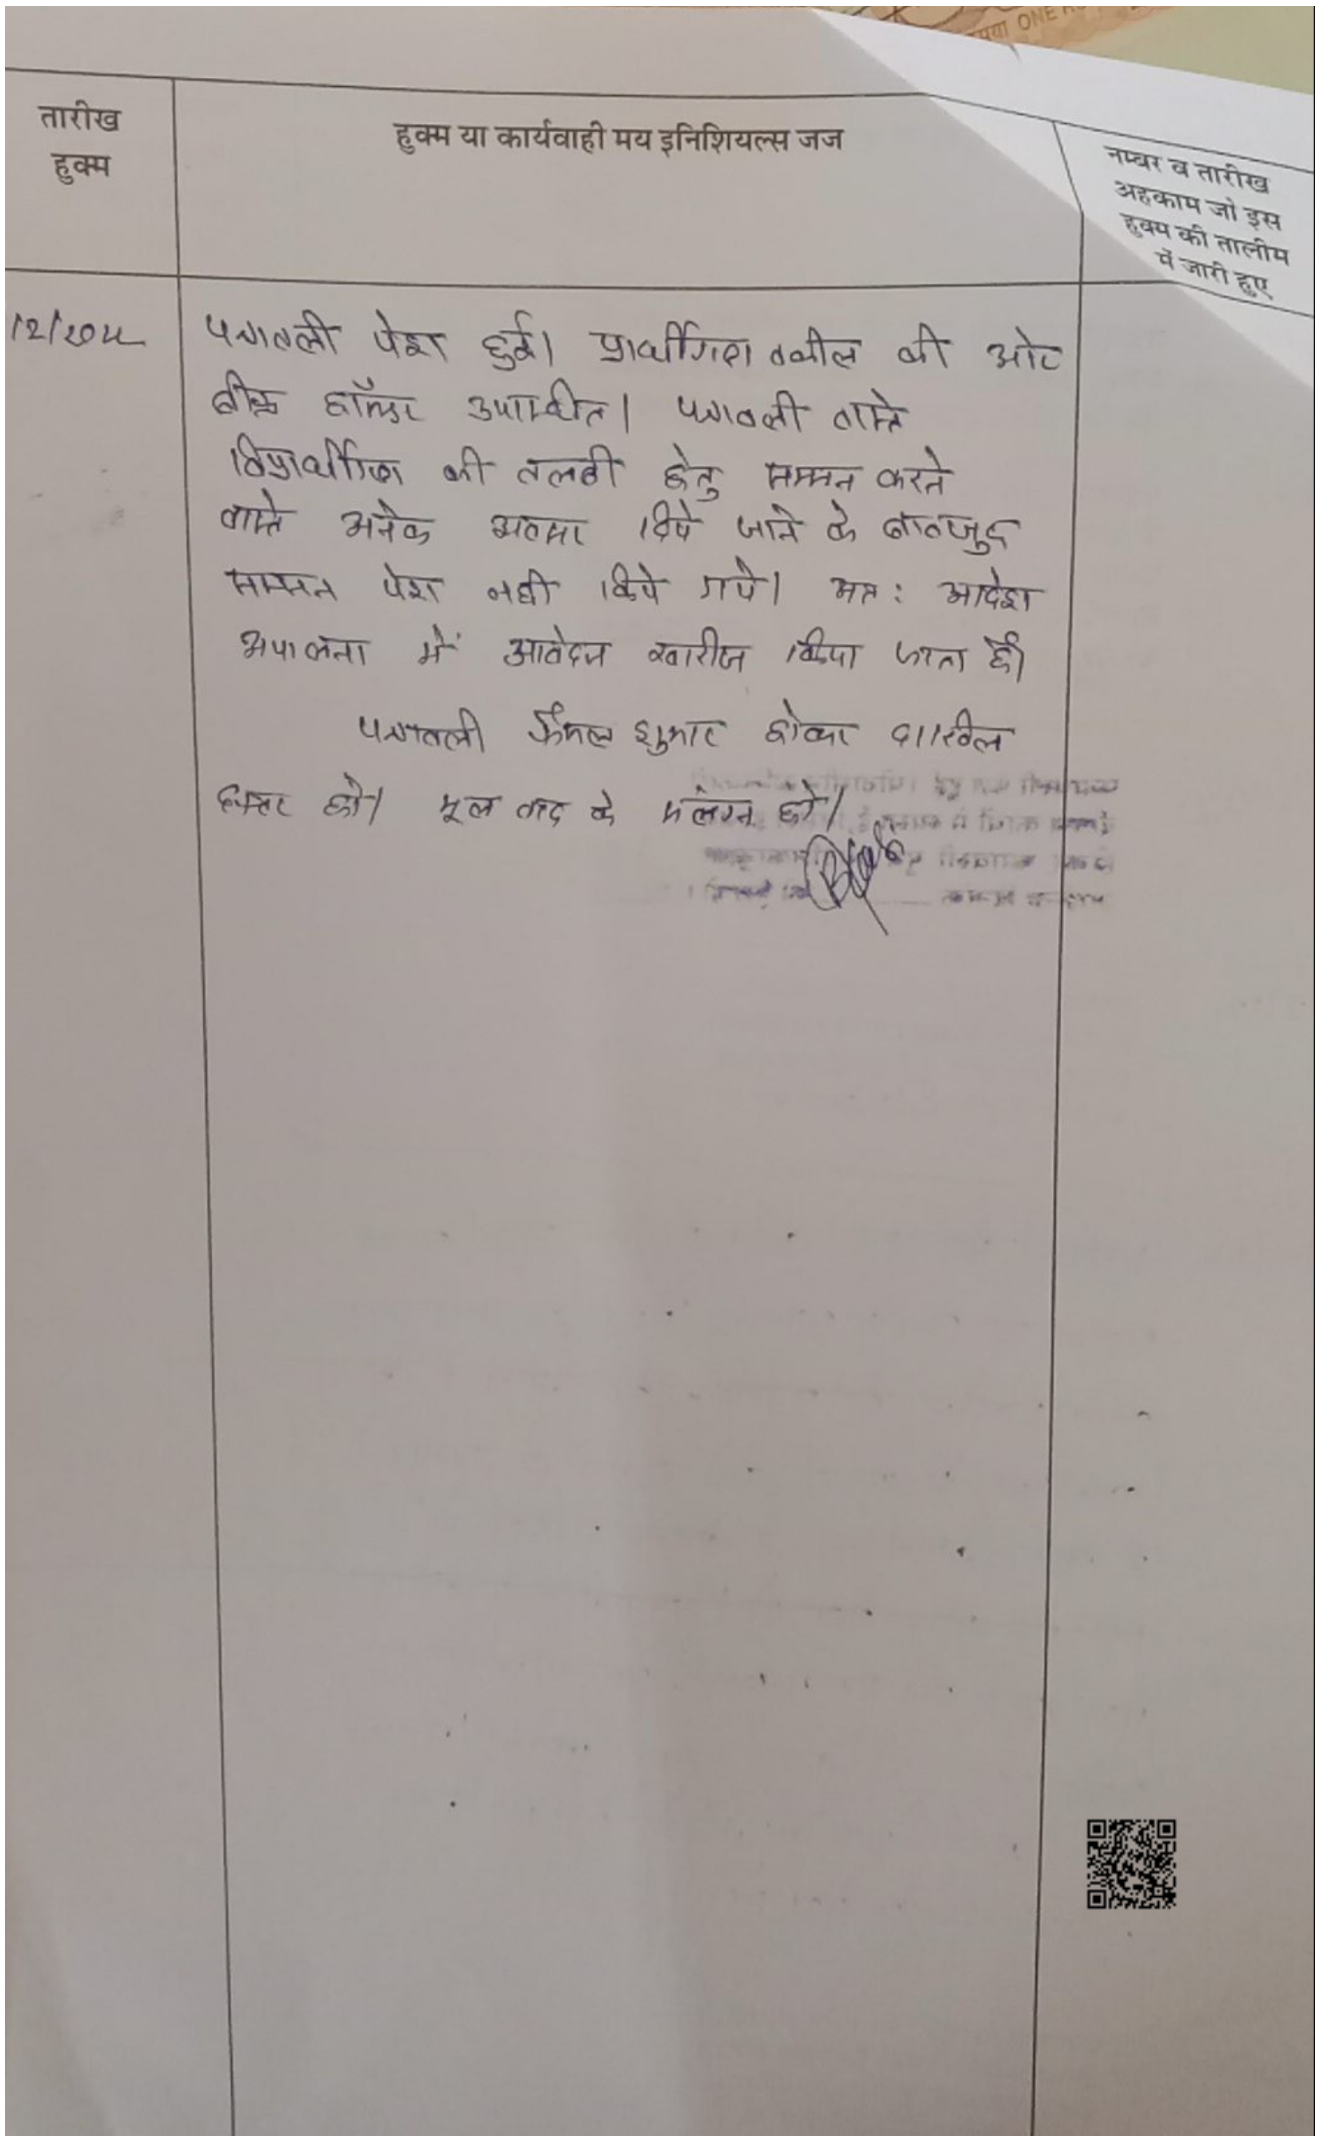 रुपया ONE RU
तारीख
हुक्म
हुक्म या कार्यवाही मय इनिशियल्स जज
नम्बर व तारीख
अहकाम जो इस
हुक्म की तालीम
में जारी हुए
पत्रावली पेश हुई। प्रार्थीगण वकील की ओर
ब्रीफ होल्डर उपस्थित। पत्रावली वास्ते
विप्रार्थीगण की तलबी हेतु सम्मन करने
वास्ते अनेक अवसर दिये जाने के बावजुद
सम्मन पेश नही किये गये। अतः आदेश
अपालना में आवेदन खारीज किया जाता है।
पत्रावली फैसल शुमार होकर दाखिल
दफ्तर हो। मूल वाद के संलग्न हो।